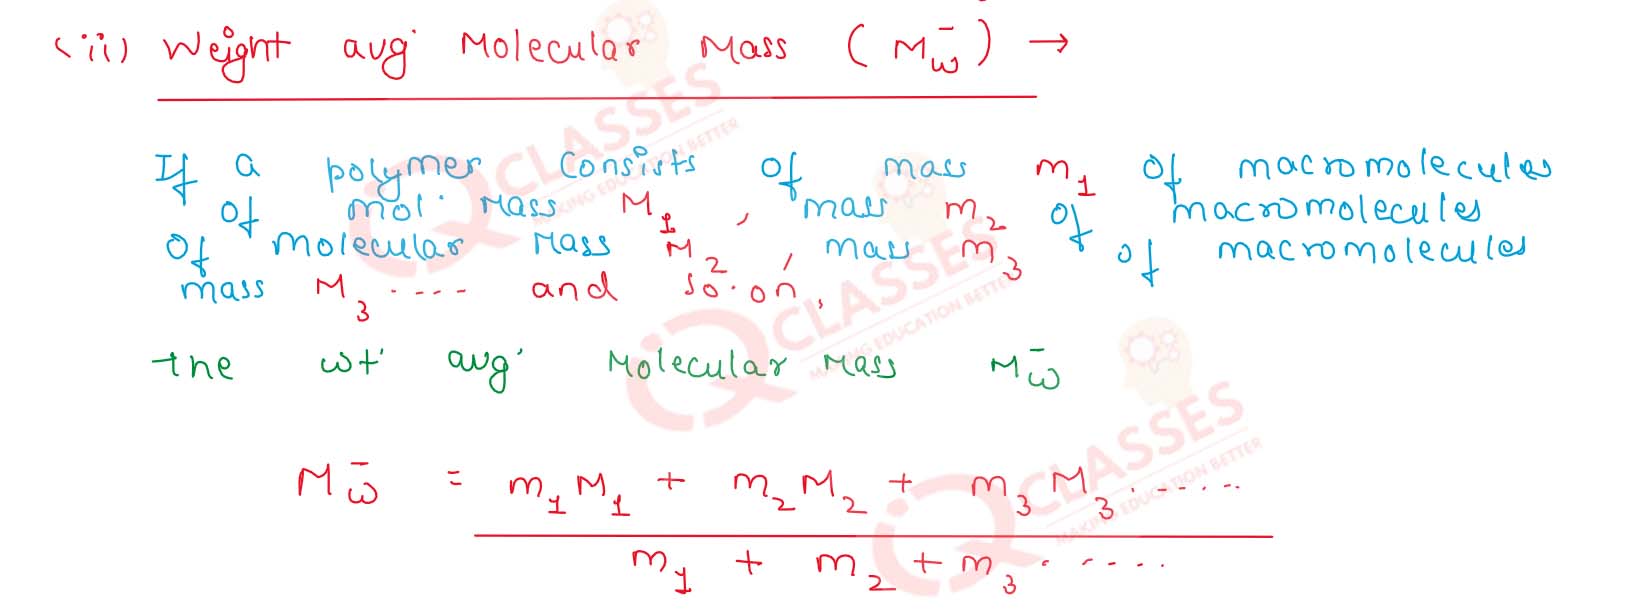 (ii) Weight avg. Molecular Mass (M̄w) →
If a polymer consists of mass m₁ of macromolecules
of mol. mass M₁, mass m₂ of macromolecules
of molecular mass M₂, mass m₃ of macromolecules
mass M₃ .... and so.on,
the wt. avg. Molecular Mass M̄w
M̄w = m₁M₁ + m₂M₂ + m₃M₃ ......
m₁ + m₂ + m₃ ......
IQ CLASSES
MAKING EDUCATION BETTER
IQ CLASSES
MAKING EDUCATION BETTER
IQ CLASSES
MAKING EDUCATION BETTER